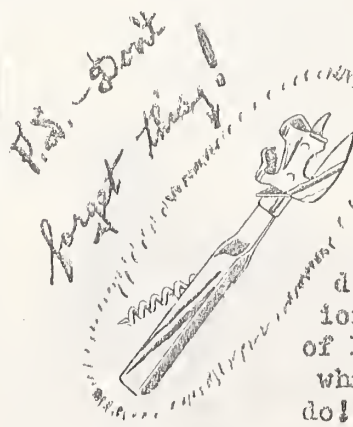 P.S. - Don't
forget this!
d
ion
of
whi
do!